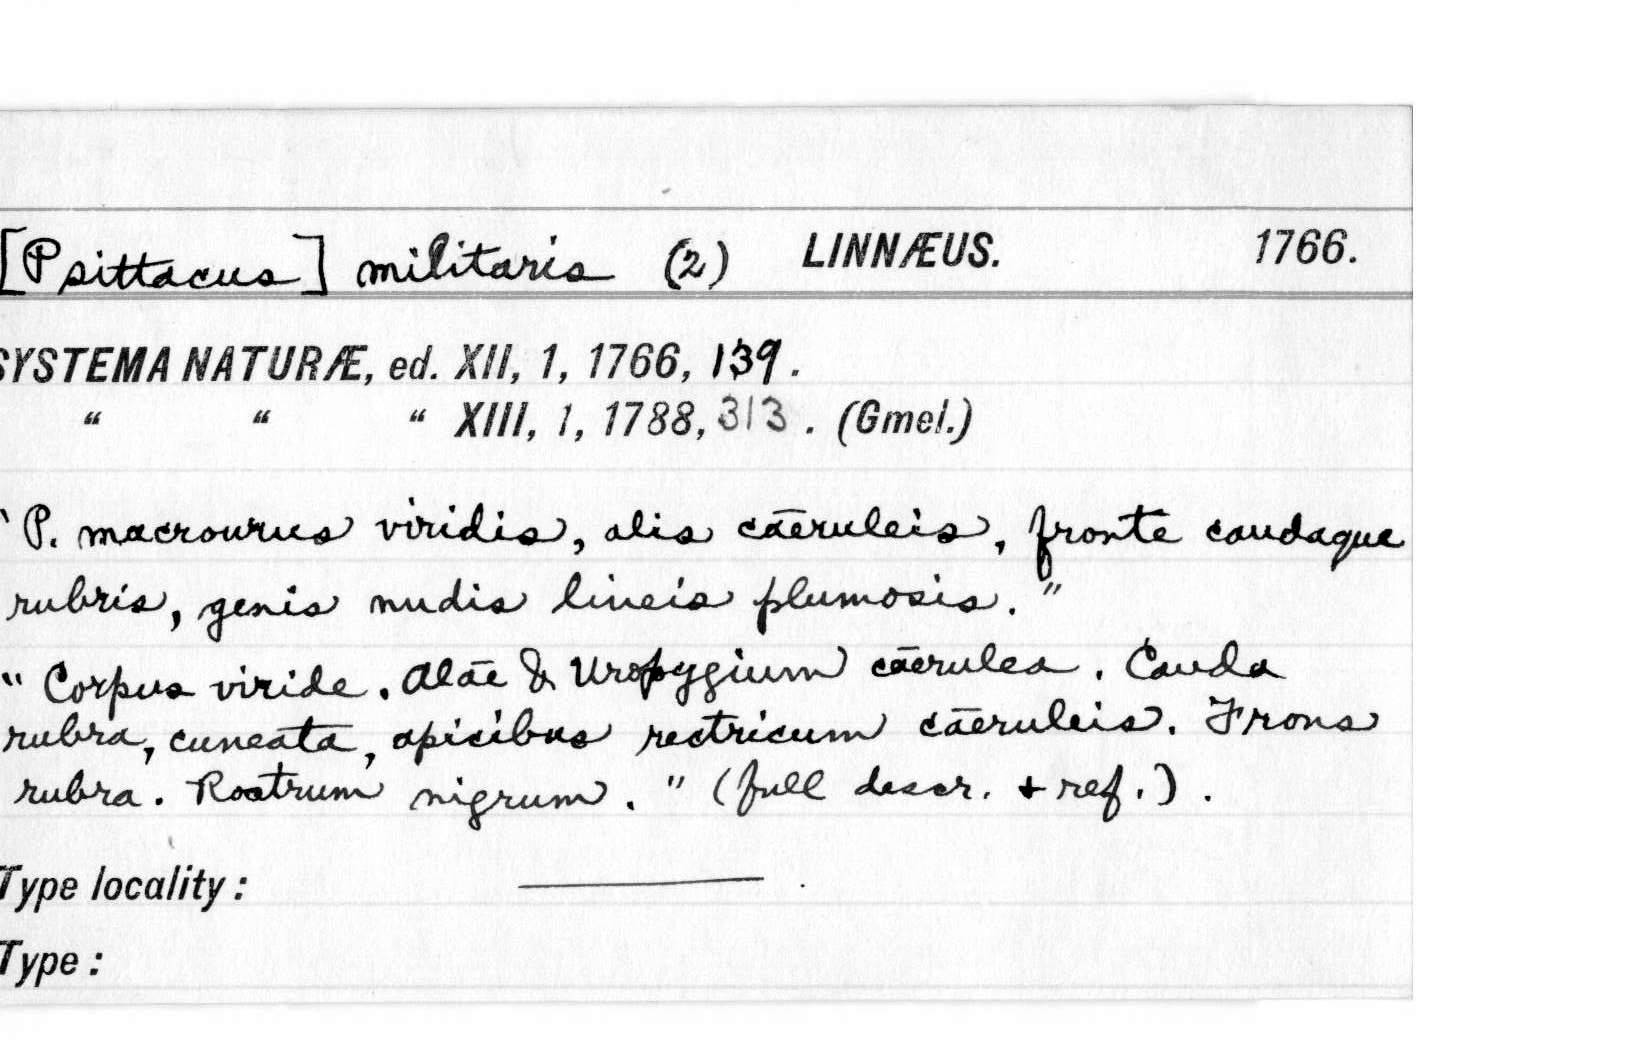 [Psittacus] militaris (2) LINNÆUS. 1766.
SYSTEMA NATURÆ, ed. XII, 1, 1766, 139.
“ “ “ XIII, 1, 1788, 313. (Gmel.)
" P. macrourus viridis, alis caeruleis, fronte caudaque
rubris, genis nudis lineis plumosis."
" Corpus viride. Alae & Uropygium caerulea. Cauda
rubra, cuneata, apicibus rectricum caeruleis. Frons
rubra. Rostrum nigrum." (full descr. + ref.).
Type locality: ———.
Type: